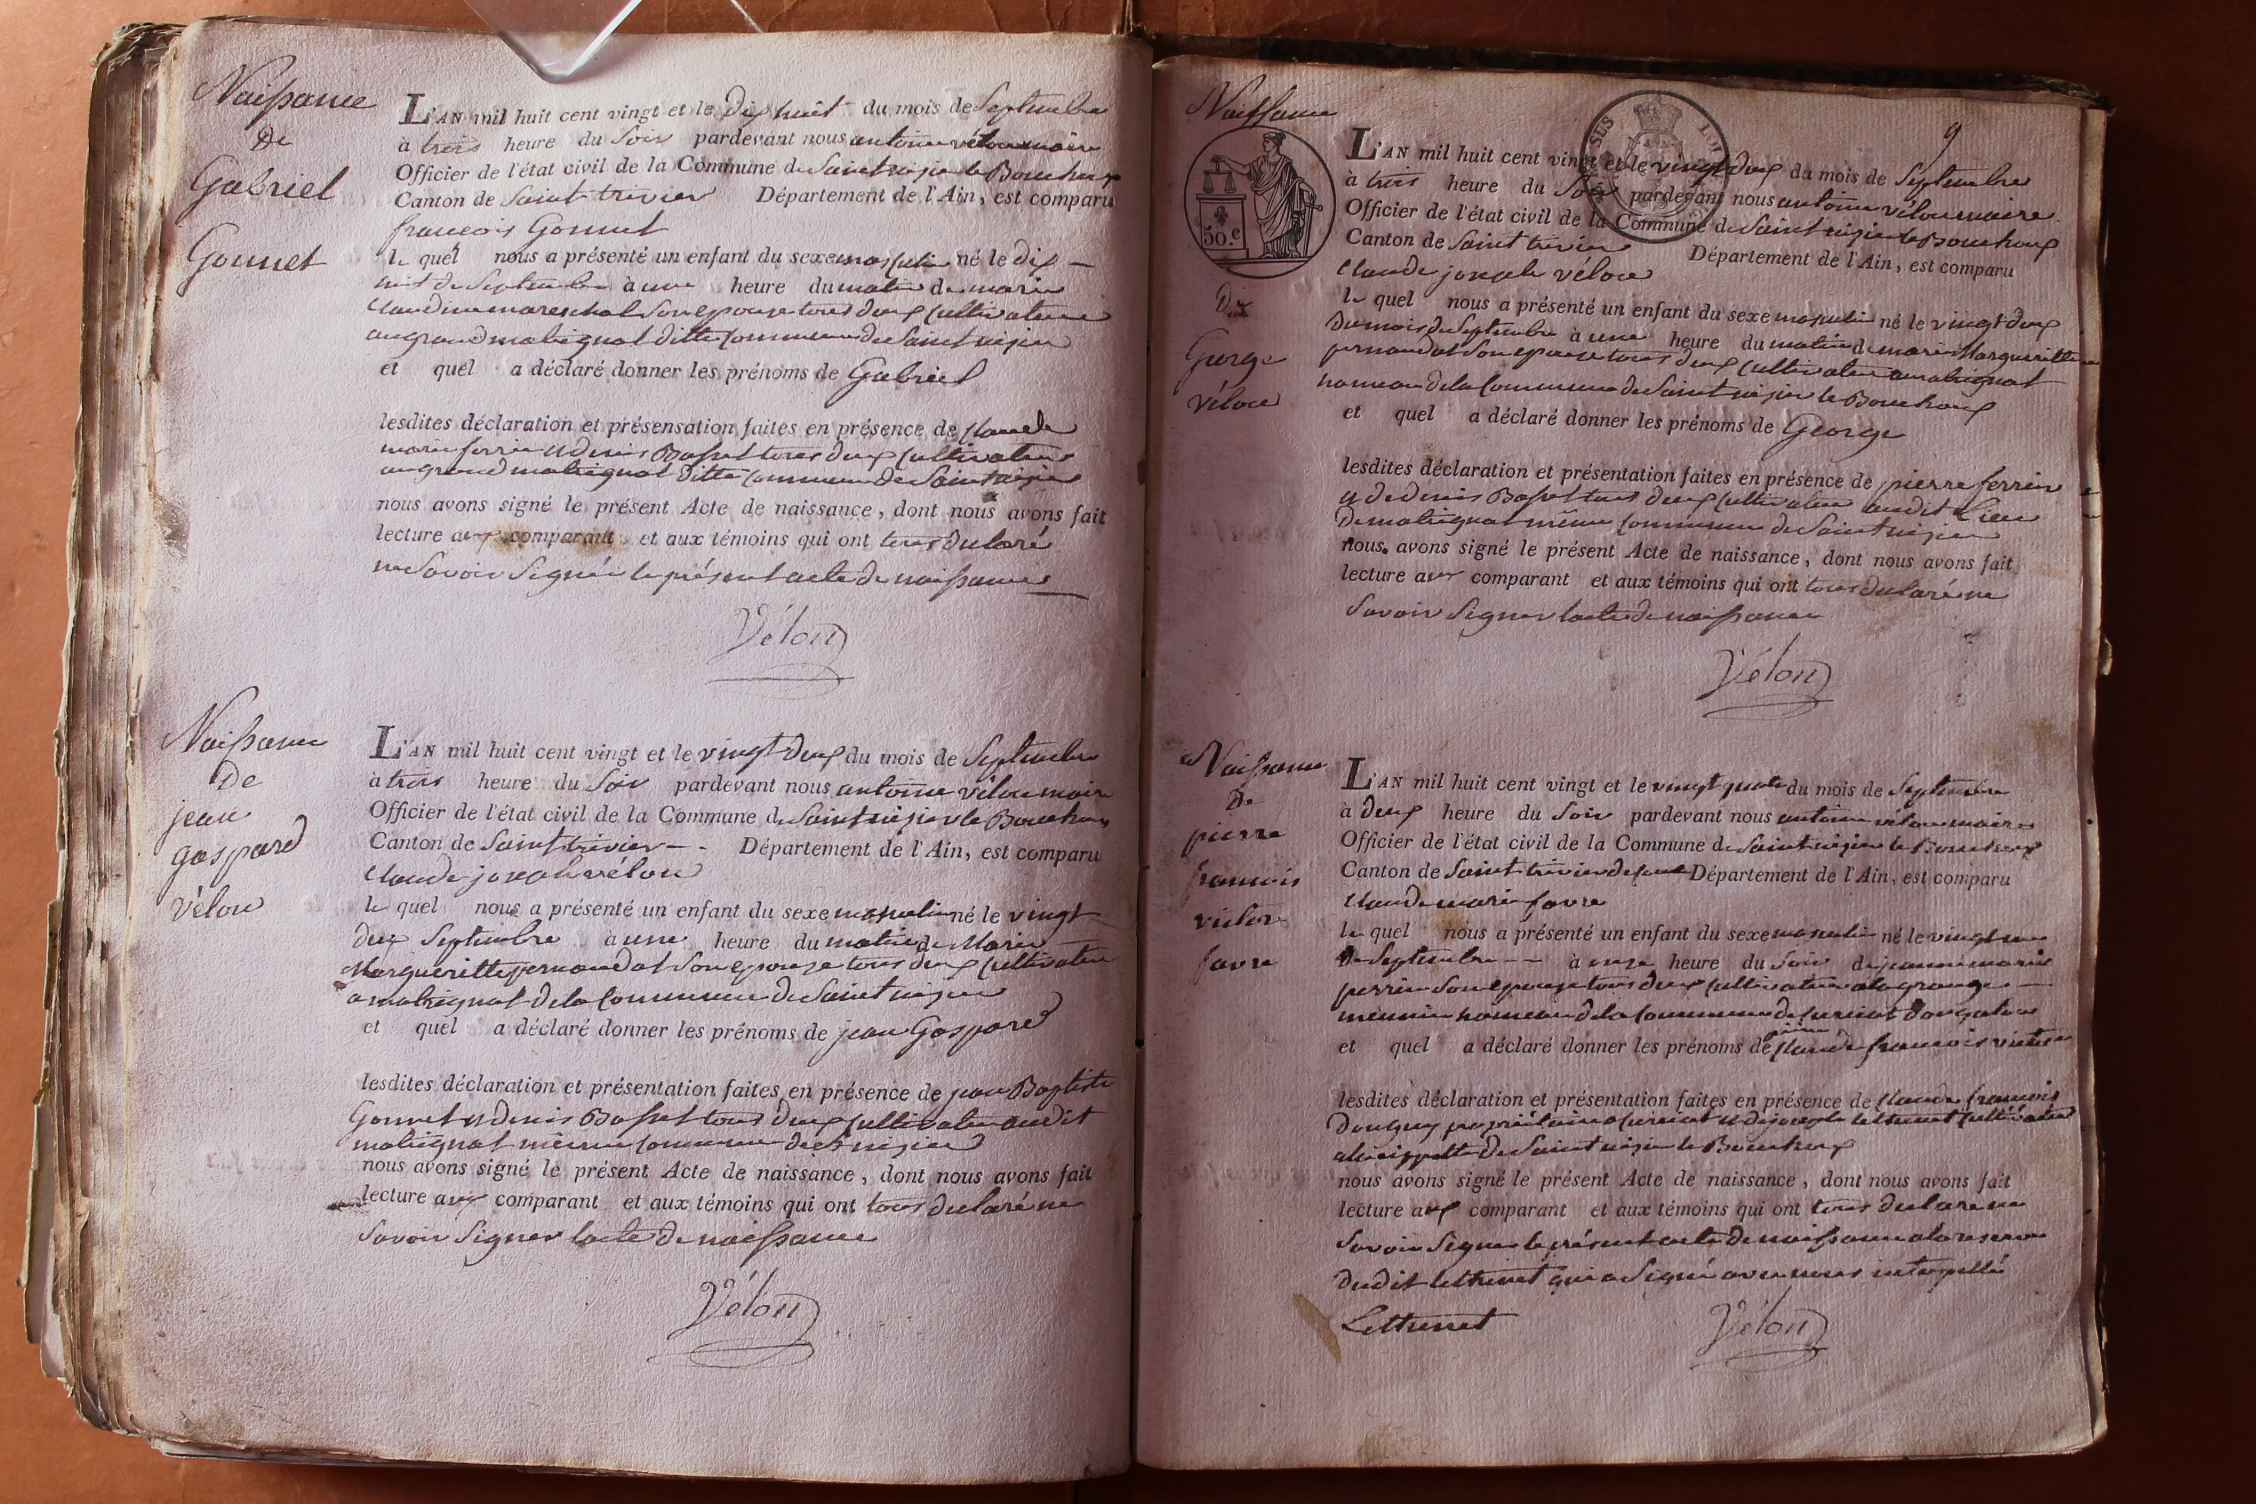 Naissance
De
Gabriel
Gonnet
L'AN mil huit cent vingt et le Dix huit du mois de Septembre
à trois heure du Soir pardevant nous antoine vélon maire
Officier de l'état civil de la Commune de Saint nizier le Bouchoux
Canton de Saint trivier Département de l'Ain, est comparu
francois Gonnet
le quel nous a présenté un enfant du sexe masculin né le dix
huit de Septembre à une heure du matin de marie
claudine mareschal Son epouze tous deux Cultivateurs
au grand matrignat ditte Commune de Saint nizier
et quel a déclaré donner les prénoms de Gabriel
lesdites déclaration et présensation faites en présence de Claude
marie ferrin et denis Bassset tous deux Cultivateurs
au grand matrignat ditte Commune de Saint nizier
nous avons signé le présent Acte de naissance, dont nous avons fait
lecture aux comparant et aux témoins qui ont tous declaré
ne Savoir Signér le présent acte de naissance
Vélon
Naissance
De
jean
gaspard
vélon
L'AN mil huit cent vingt et le vingt deux du mois de Septembre
à trois heure du Soir pardevant nous antoine vélon maire
Officier de l'état civil de la Commune de Saint nizier le Bouchoux
Canton de Saint trivier Département de l'Ain, est comparu
Claude joseph vélon
le quel nous a présenté un enfant du sexe masculin né le vingt
deux Septembre à une heure du matin de Marie
Margueritte pernaudat Son epouze tous deux Cultivateurs
a matrignat de la Commune de Saint nizier
et quel a déclaré donner les prénoms de jean Gaspard
lesdites déclaration et présentation faites en présence de jean Baptiste
Gonnet et denis Bassset tous deux Cultivateurs audit
matrignat même Commune de St nizier
nous avons signé le présent Acte de naissance, dont nous avons fait
lecture aux comparant et aux témoins qui ont tous declaré ne
Savoir Signer lacte de naissance
Vélon
9
Naissance
50.c
De
George
vélon
L'AN mil huit cent vingt et le vingt deux du mois de Septembre
à trois heure du Soir pardevant nous antoine vélon maire
Officier de l'état civil de la Commune de Saint nizier le Bouchoux
Canton de Saint trivier Département de l'Ain, est comparu
Claude joseph vélon
le quel nous a présenté un enfant du sexe masculin né le vingt deux
du mois de Septembre à une heure du matin de marie Margueritte
pernaudat Son epouze tous deux Cultivateurs a matrignat
hameau de la Commune de Saint nizier le Bouchoux
et quel a déclaré donner les prénoms de George
lesdites déclaration et présentation faites en présence de pierre ferrin
et de denis Bassset tous deux Cultivateurs audit Lieu
de matrignat même Commune de Saint nizier
nous avons signé le présent Acte de naissance, dont nous avons fait
lecture aux comparant et aux témoins qui ont tous declaré ne
Savoir Signer lacte de naissance
Vélon
Naissance
De
pierre
francois
victor
favre
L'AN mil huit cent vingt et le vingt quatre du mois de Septembre
à deux heure du Soir pardevant nous antoine vélon maire
Officier de l'état civil de la Commune de Saint nizier le Bouchoux
Canton de Saint trivier Département de l'Ain, est comparu
Claude marie favre
le quel nous a présenté un enfant du sexe masculin né le vingt
De Septembre à onze heure du Soir de jeanne marie
perrin Son epouze tous deux Cultivateurs a la grange
meunier hameau de la Commune de Curciat Dongalon
et quel a déclaré donner les prénoms de pierre Claude francois victor
lesdites déclaration et présentation faites en présence de Claude francois
propriétaire a Curciat et de joseph Cultivateur
de Saint nizier le Bouchoux
nous avons signé le présent Acte de naissance, dont nous avons fait
lecture aux comparant et aux témoins qui ont tous declare ne
Savoir Signer le présent acte de naissance a la reserve
dudit qui a Signé avec nous interpellé
Vélon